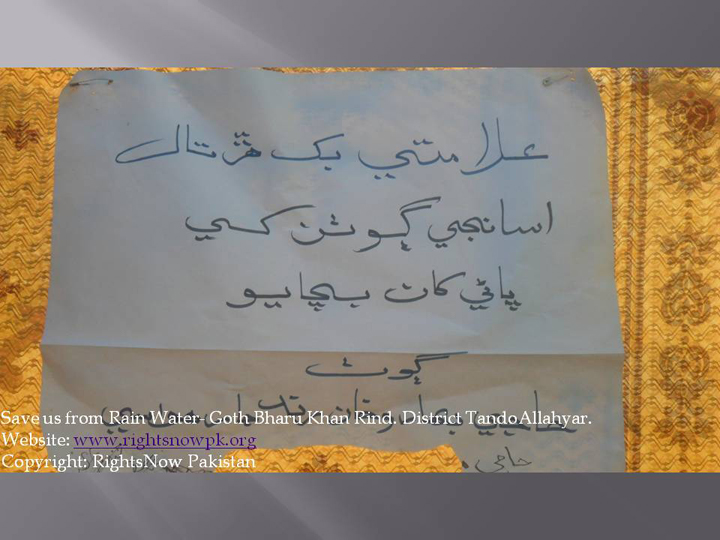 علامتي بک هڙتال
اسانجي ڳوٺن کي
پاڻي کان بچايو
ڳوٺ
Save us from Rain Water- Goth Bharu Khan Rind. District TandoAllahyar.
Website: www.rightsnowpk.org
Copyright: RightsNow Pakistan
حاجي